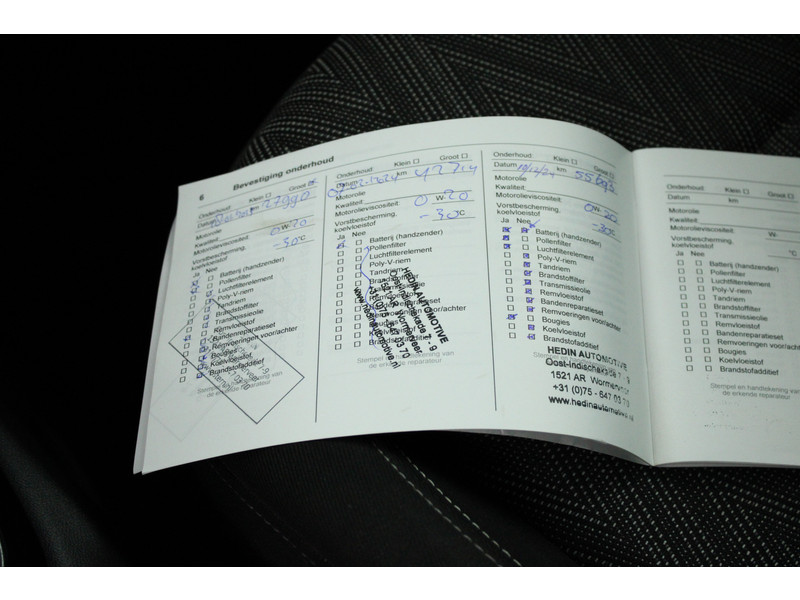 6 Bevestiging onderhoud
Onderhoud: Klein Groot
Datum 27990
Motorolie
Kwaliteit
Motorolieviscositeit: 0 W- 20
Vorstbescherming,
koelvloeistof -30 °C
Ja Nee
Batterij (handzender)
Pollenfilter
Luchtfilterelement
Poly-V-riem
Tandriem
Brandstoffilter
Transmissieolie
Remvloeistof
Bandenreparatieset
Remvoeringen voor/achter
Bougies
Koelvloeistof
Brandstofadditief
Onderhoud: Klein Groot
Datum km 42714
Motorolie
Kwaliteit:
Motorolieviscositeit: 0 W- 20
Vorstbescherming,
koelvloeistof -30 °C
Ja Nee
Batterij (handzender)
Pollenfilter
Luchtfilterelement
Poly-V-riem
Tandriem
HEDIN AUTOMOTIVE
Oost-Indischekade 7 - 9
1521 AR Wormerveer
+31 (0)75 - 647 03 70
www.hedinautomotive.nl
Stempel en handtekening van
de erkende reparateur
Onderhoud: Klein Groot
Datum 18/12/24 km 55693
Motorolie
Kwaliteit:
Motorolieviscositeit: 0 W- 20
Vorstbescherming,
koelvloeistof -30 °C
Ja Nee
Batterij (handzender)
Pollenfilter
Luchtfilterelement
Poly-V-riem
Tandriem
Brandstoffilter
Transmissieolie
Remvloeistof
Bandenreparatieset
Remvoeringen voor/achter
Bougies
Koelvloeistof
Brandstofadditief
HEDIN AUTOMOTIVE
Oost-Indischekade 7 - 9
1521 AR Wormerveer
+31 (0)75 - 647 03 70
www.hedinautomotive.nl
Onderhoud: Klein Groot
Datum km
Motorolie
Kwaliteit:
Motorolieviscositeit: W-
Vorstbescherming,
koelvloeistof °C
Ja Nee
Batterij (handzender)
Pollenfilter
Luchtfilterelement
Poly-V-riem
Tandriem
Brandstoffilter
Transmissieolie
Remvloeistof
Bandenreparatieset
Remvoeringen voor/achter
Bougies
Koelvloeistof
Brandstofadditief
Stempel en handtekening van
de erkende reparateur